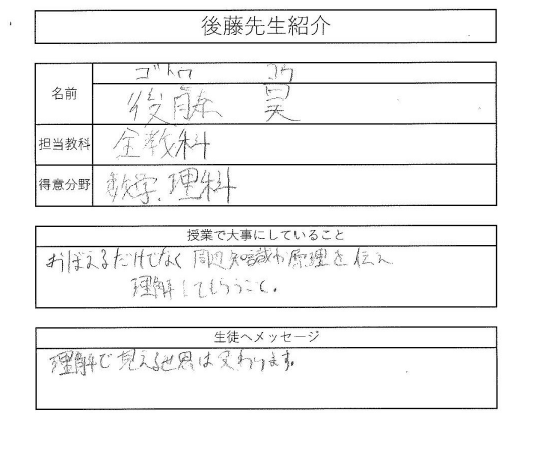 後藤先生紹介
ゴトウ コウ
名前
後藤 昊
担当教科
全教科
得意分野
数学、理科
授業で大事にしていること
おぼえるだけでなく周辺知識や原理を伝え
理解してもらうこと。
生徒へメッセージ
理解で見える世界は変わります。